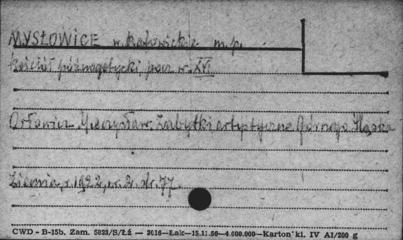 MYSŁOWICE w. katowickie m.p.
kościół późnogotycki, pocz. w. XVI
Orłowicz Mieczysław: Zabytki artystyczne Górnego Śląska
Ziemia, r. 1922, nr 2, str. 77.
CWD - B-15b. Zam. 5823/S/Łź — 2016—Łak—15.11.56—4.000.000—Karton kl. IV A1/200 g